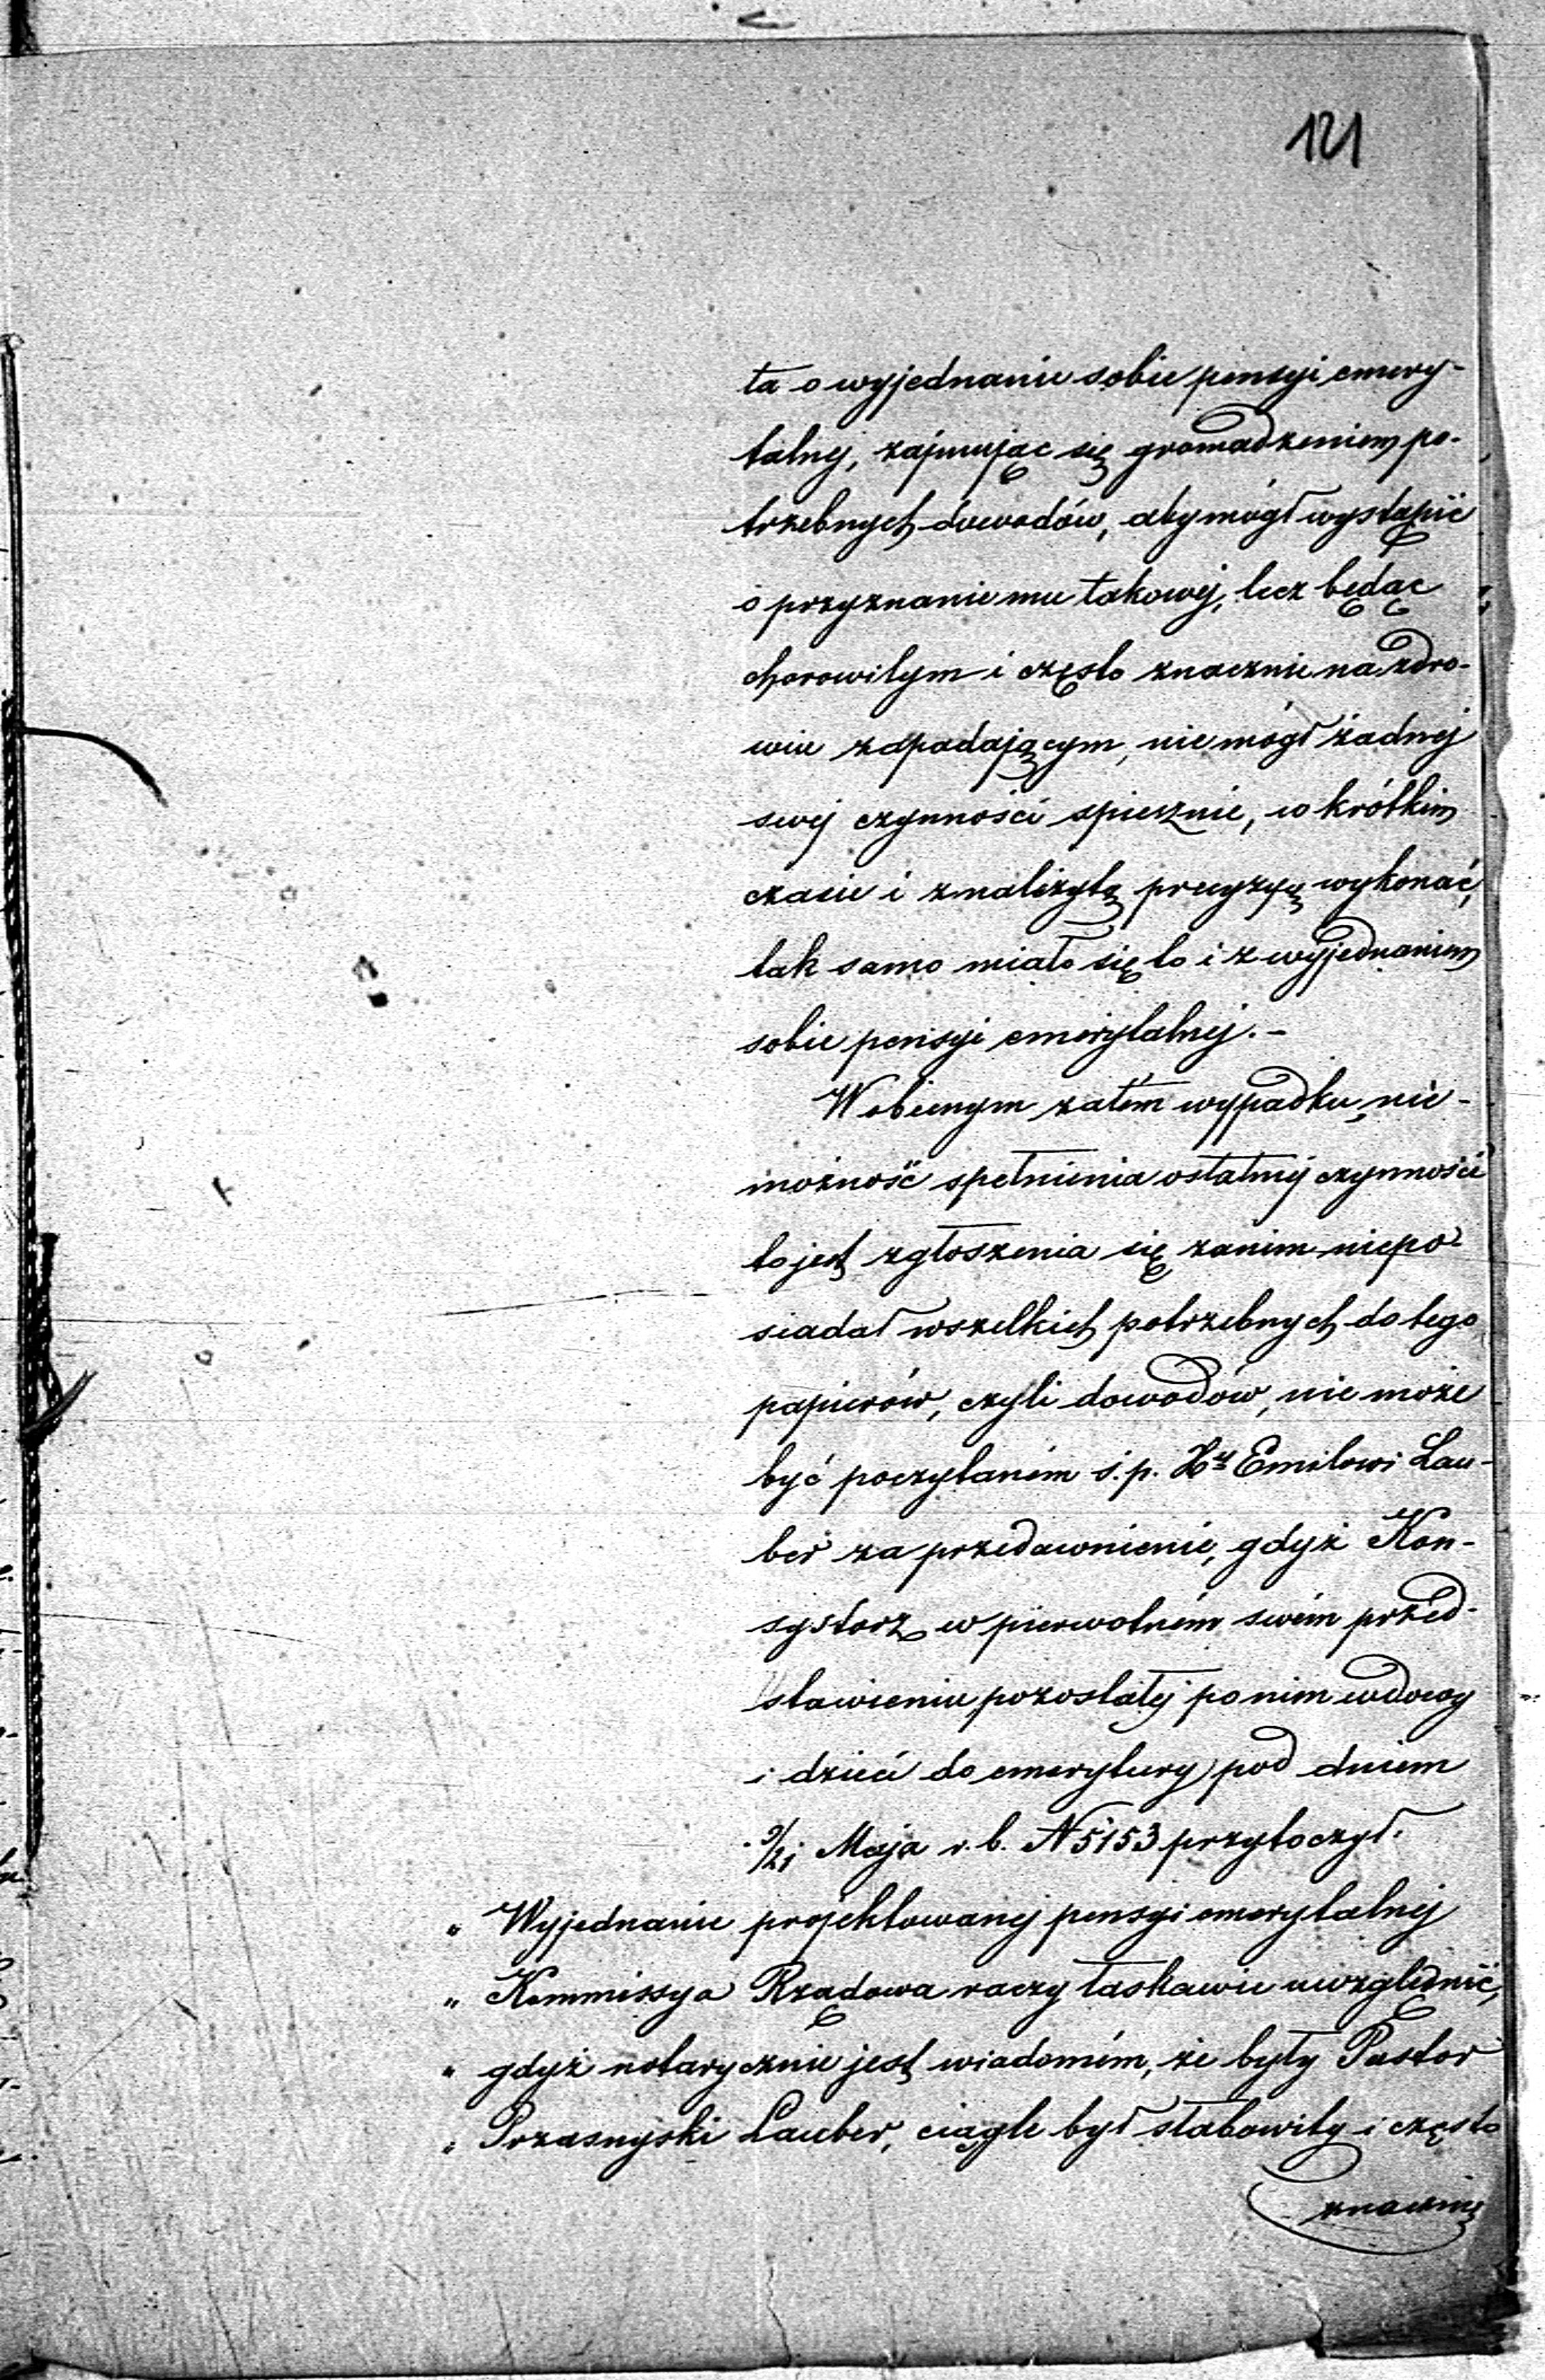 121
ta o wyjednanie sobie pensyi emery-
talnej, zajmując się gromadzeniem po-
trzebnych dowodów, aby mógł wystąpić
o przyznanie mu takowej, lecz będąc
chorowitym i często znacznie na zdro-
wiu zapadającym, nie mógł żadnej
swej czynności spiesznie, w krótkim
czasie i z należytą precyzyą wykonać,
tak samo miało się to i z wyjednaniem
sobie pensyi emerytalnej.-
W obecnym zatém wypadku, nie-
możność spełnienia ostatniej czynności
to jest zgłoszenia się zanim niepo-
siadał wszelkich potrzebnych do tego
papierów, czyli dowodów, nie może
być poczytaném ś.p. Xdy Emilowi Lau-
ber za przedawnienie, gdyż Kon-
systorz w pierwotném swém przed-
stawieniu pozostałej po nim wdowy
i dzieci do emerytury pod dniem
9/21 Maja r.b. N 5153 przytoczył.
„ Wyjednanie projektowanej pensyi emerytalnej
„ Kommissya Rządowa raczy łaskawie uwzględnić,
„ gdyż notarycznie jest wiadomém, że były Pastor
„ Przasnyski Lauber, ciągle był słabowity i często
znacznie